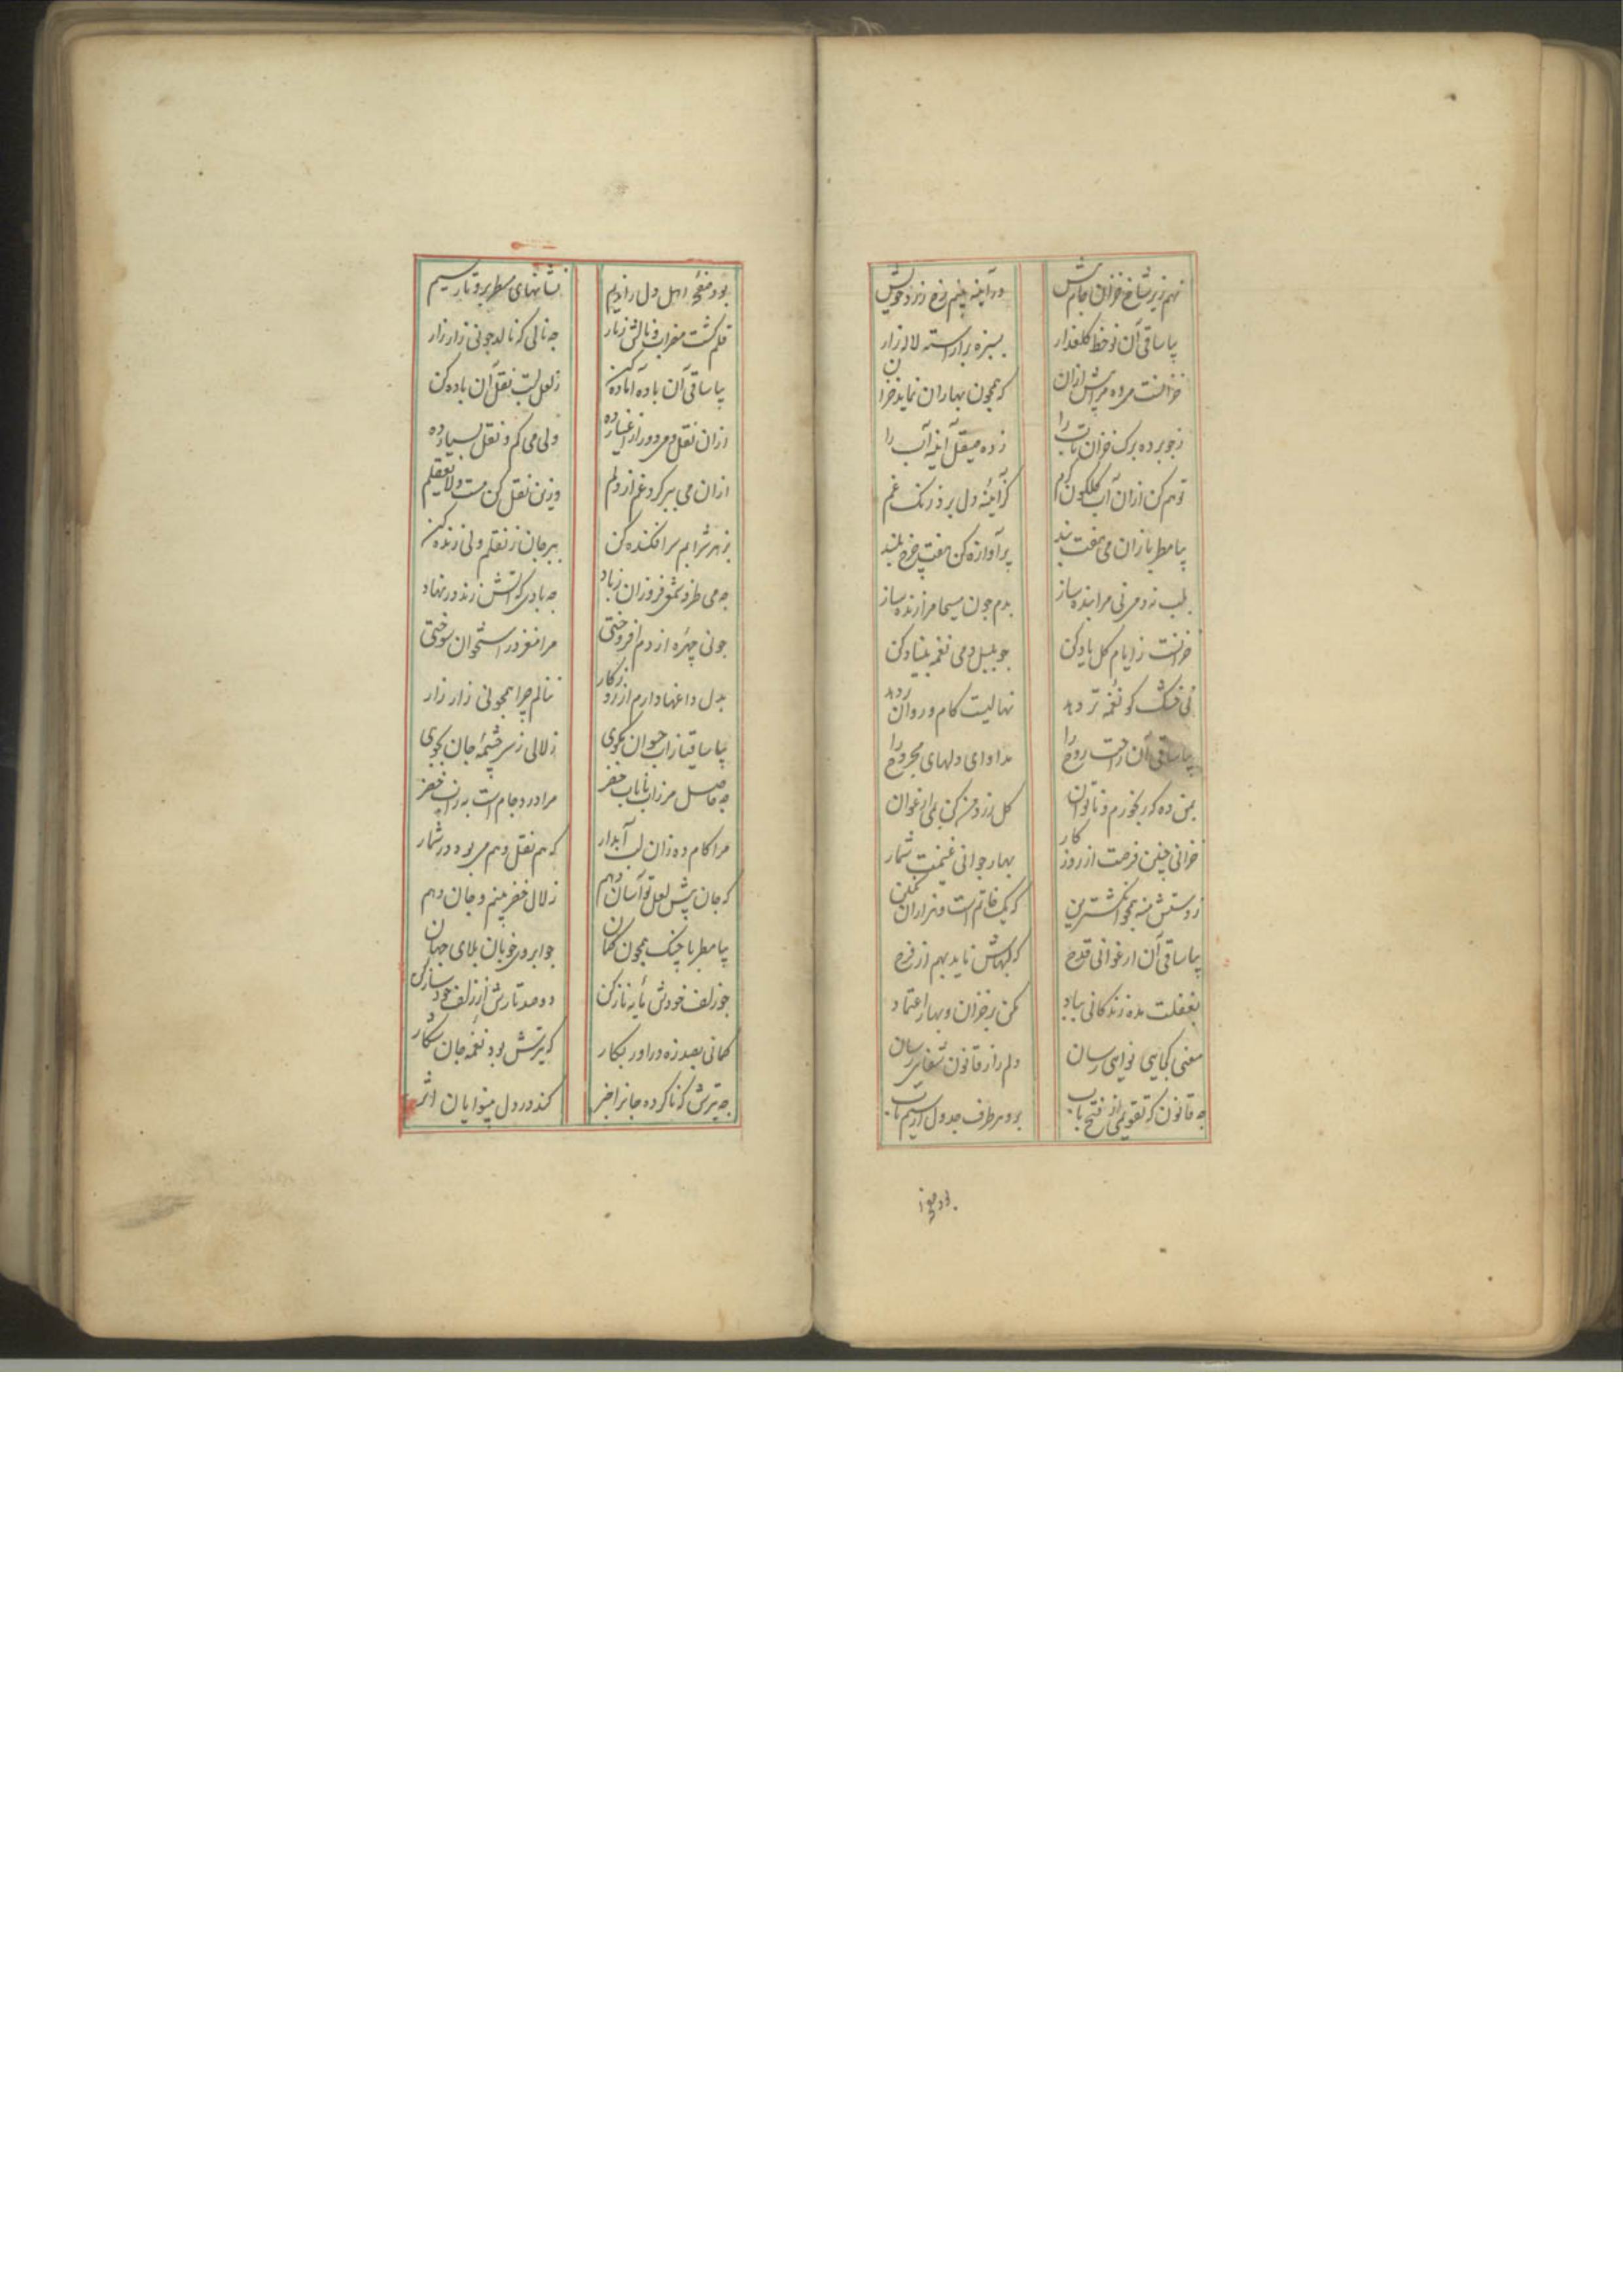 نهم زیر شاخ خزان جام پیش در آیینه بینم رخ زرد خویش
بیا ساقی آن نوخط گلعذار بسبزه برآراسته لاله زار
خزانست می ده مرا پیش ازان که همچون بهاران نماید خزان
زده صیقل آینه آب را
تو هم کن ازان آب گلگون کرم کز آیینه دل برد زنگ غم
بیا مطربا زان نی هفت بند پر آوازه کن هفت چرخ بلند
بلب نه دمی نی مرا بنده ساز بدم چون مسیحا مرا زنده ساز
خزانست ز ایام گل یاد کن چو بلبل دمی نغمه بنیاد کن
نی خشک کو نغمه تر دهد نهالیست کام و روان
بیا ساقی آن راحت روح را مداوای دلهای مجروح را
بمن ده که رنجورم و ناتوان گل زرد من کن بمی ارغوان
خزانی چنین فرصت از روزگار بهار جوانی غنیمت شمار
ز دستش منه همچو انگشترین که یک خاتم است و هزاران نگین
بیا ساقی آن ارغوانی قدح که لبهاش ناید بهم از فرح
بغفلت مده زندگانی بباد مکن بر خزان و بهار اعتماد
مغنی کجایی نوایی رسان دلم را ز قانون شفایی رسان
چه قانون که تقویمی از فتح باب برو هر طرف جدول از سیم ناب
بود صفحه
بود صفحه اهل دل را ندیم نشانهای مسطر برو تار سیم
قلم گشت مضراب و نالش ز تار چه نالی که نالد چو نی زار زار
بیا ساقی آن باده آماده کن ز لعل لبت نقل آن باده کن
ازان نقل و می دور از اغیار ده ولی می کم و نقل بسیار ده
ازان می ببر گرد غم از دلم وزین نقل کن مست و لایعقلم
ز بهر شرابم سرافکنده کن ببر جان ز نقلم ولی زنده کن
چه می طرفه شمعی فروزان ز باد چه بادی که آتش زند در نهاد
چو نی چهره از دم افروختی مرا مغز در استخوان سوختی
بدل داغها دارم از روزگار ننالم چرا همچو نی زار زار
بیا ساقیا زاب حیوان بگوی زلالی ز سرچشمه جان بجوی
چه حاصل مرا زاب نایاب خضر مرا درد جام است به زاب خضر
مرا کام ده زان لب آبدار که هم نقل و هم می بود در شمار
که جان پیش لعل تو آسان دهم زلال خضر بینم و جان دهم
بیا مطربا چنگ همچون کمان چو ابروی خوبان بلای جهان
چو زلف خودش مایه ناز کن دو صد تارش از زلف خود ساز کن
کمانی بصد زه درآور بکار که تیرش بود نغمه جان شکار
چه تیرش که ناکرده جانرا خبر کند در دل بینوایان اثر